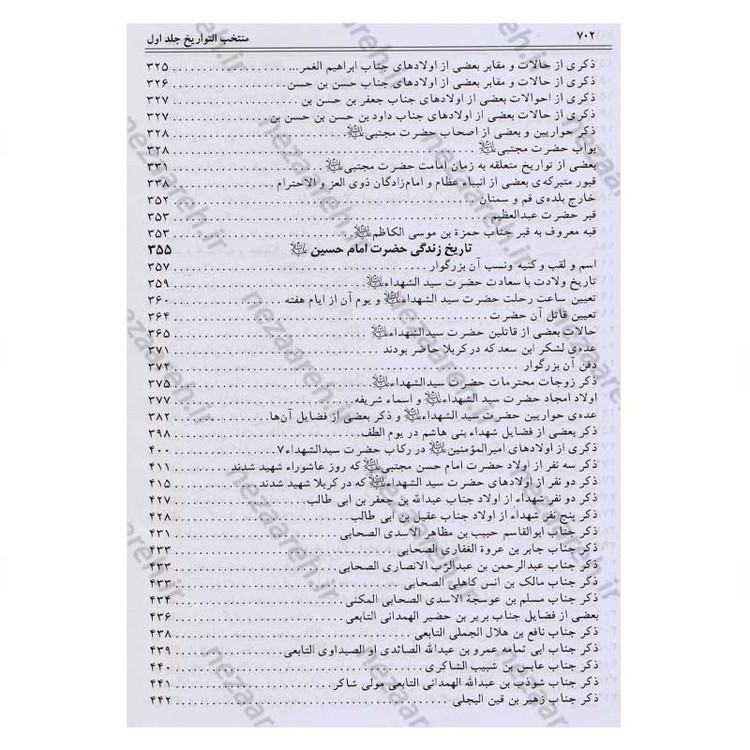 ۷۰۲ منتخب التواریخ جلد اول
ذکری از حالات و مقابر بعضی از اولادهای جناب ابراهیم الغمر... ۳۲۵
ذکری از حالات و مقابر بعضی از اولادهای جناب حسن بن حسن ۳۲۶
ذکری از احوالات بعضی از اولادهای جناب جعفر بن حسن بن ۳۲۷
ذکری از حالات بعضی از اولادهای جناب داود بن حسن بن حسن بن ۳۲۷
ذکر حواریین و بعضی از اصحاب حضرت مجتبی ۳۲۸
بواب حضرت مجتبی ۳۲۸
بعضی از تواریخ متعلقه به زمان امامت حضرت مجتبی ۳۳۱
قبور متبرکه‌ی بعضی از انبیاء عظام و امام‌زادگان ذوی العز و الاحترام ۳۳۸
خارج بلده‌ی قم و سمنان ۳۵۲
قبر حضرت عبدالعظیم ۳۵۳
قبه معروف به قبر جناب حمزة بن موسی الکاظم ۳۵۳
تاریخ زندگی حضرت امام حسین ۳۵۵
اسم و لقب و کنیه ونسب آن بزرگوار ۳۵۷
تاریخ ولادت با سعادت حضرت سید الشهداء ۳۵۹
تعیین ساعت رحلت حضرت سید الشهداء و یوم آن از ایام هفته ۳۶۰
تعیین قاتل آن حضرت ۳۶۴
حالات بعضی از قاتلین حضرت سیدالشهداء ۳۶۵
عده‌ی لشکر ابن سعد که در کربلا حاضر بودند ۳۷۱
دفن آن بزرگوار ۳۷۲
ذکر زوجات محترمات حضرت سید الشهداء ۳۷۵
اولاد امجاد حضرت سید الشهداء و اسماء شریفه ۳۷۷
عده‌ی حواریین حضرت سید الشهداء و ذکر بعضی از فضایل آن‌ها ۳۸۲
ذکر بعضی از فضایل شهداء بنی هاشم در یوم الطف ۳۹۸
ذکری از اولادهای امیرالمؤمنین در رکاب حضرت سیدالشهداء۷ ۴۰۰
ذکر سه نفر از اولاد حضرت امام حسن مجتبی که روز عاشوراء شهید شدند ۴۱۱
ذکر دو نفر از اولادهای حضرت سید الشهداء که در کربلا شهید شدند ۴۱۵
ذکر دو نفر شهداء از اولاد جناب عبدالله بن جعفر بن ابی طالب ۴۲۷
ذکر پنج نفر شهداء از اولاد جناب عقیل بن ابی طالب ۴۲۸
ذکر جناب ابوالقاسم حبیب بن مظاهر الاسدی الصحابی ۴۳۱
ذکر جناب جابر بن عروة الغفاری الصحابی ۴۳۳
ذکر جناب عبدالرحمن بن عبدالرّب الانصاری الصحابی ۴۳۳
ذکر جناب مالک بن انس کاهلی الصحابی ۴۳۳
ذکر جناب مسلم بن عوسجة الاسدی الصحابی المکنی ۴۳۴
بعضی از فضایل جناب بریر بن حضیر الهمدانی التابعی ۴۳۶
ذکر جناب نافع بن هلال الجملی التابعی ۴۳۸
ذکر جناب ابی ثمامه عمرو بن عبدالله الصائدی او الصیداوی التابعی ۴۳۹
ذکر جناب عابس بن شبیب الشاکری ۴۴۰
ذکر جناب شوذب بن عبدالله الهمدانی التابعی مولی شاکر ۴۴۱
ذکر جناب زهیر بن قین البجلی ۴۴۲
nezaareh.ir